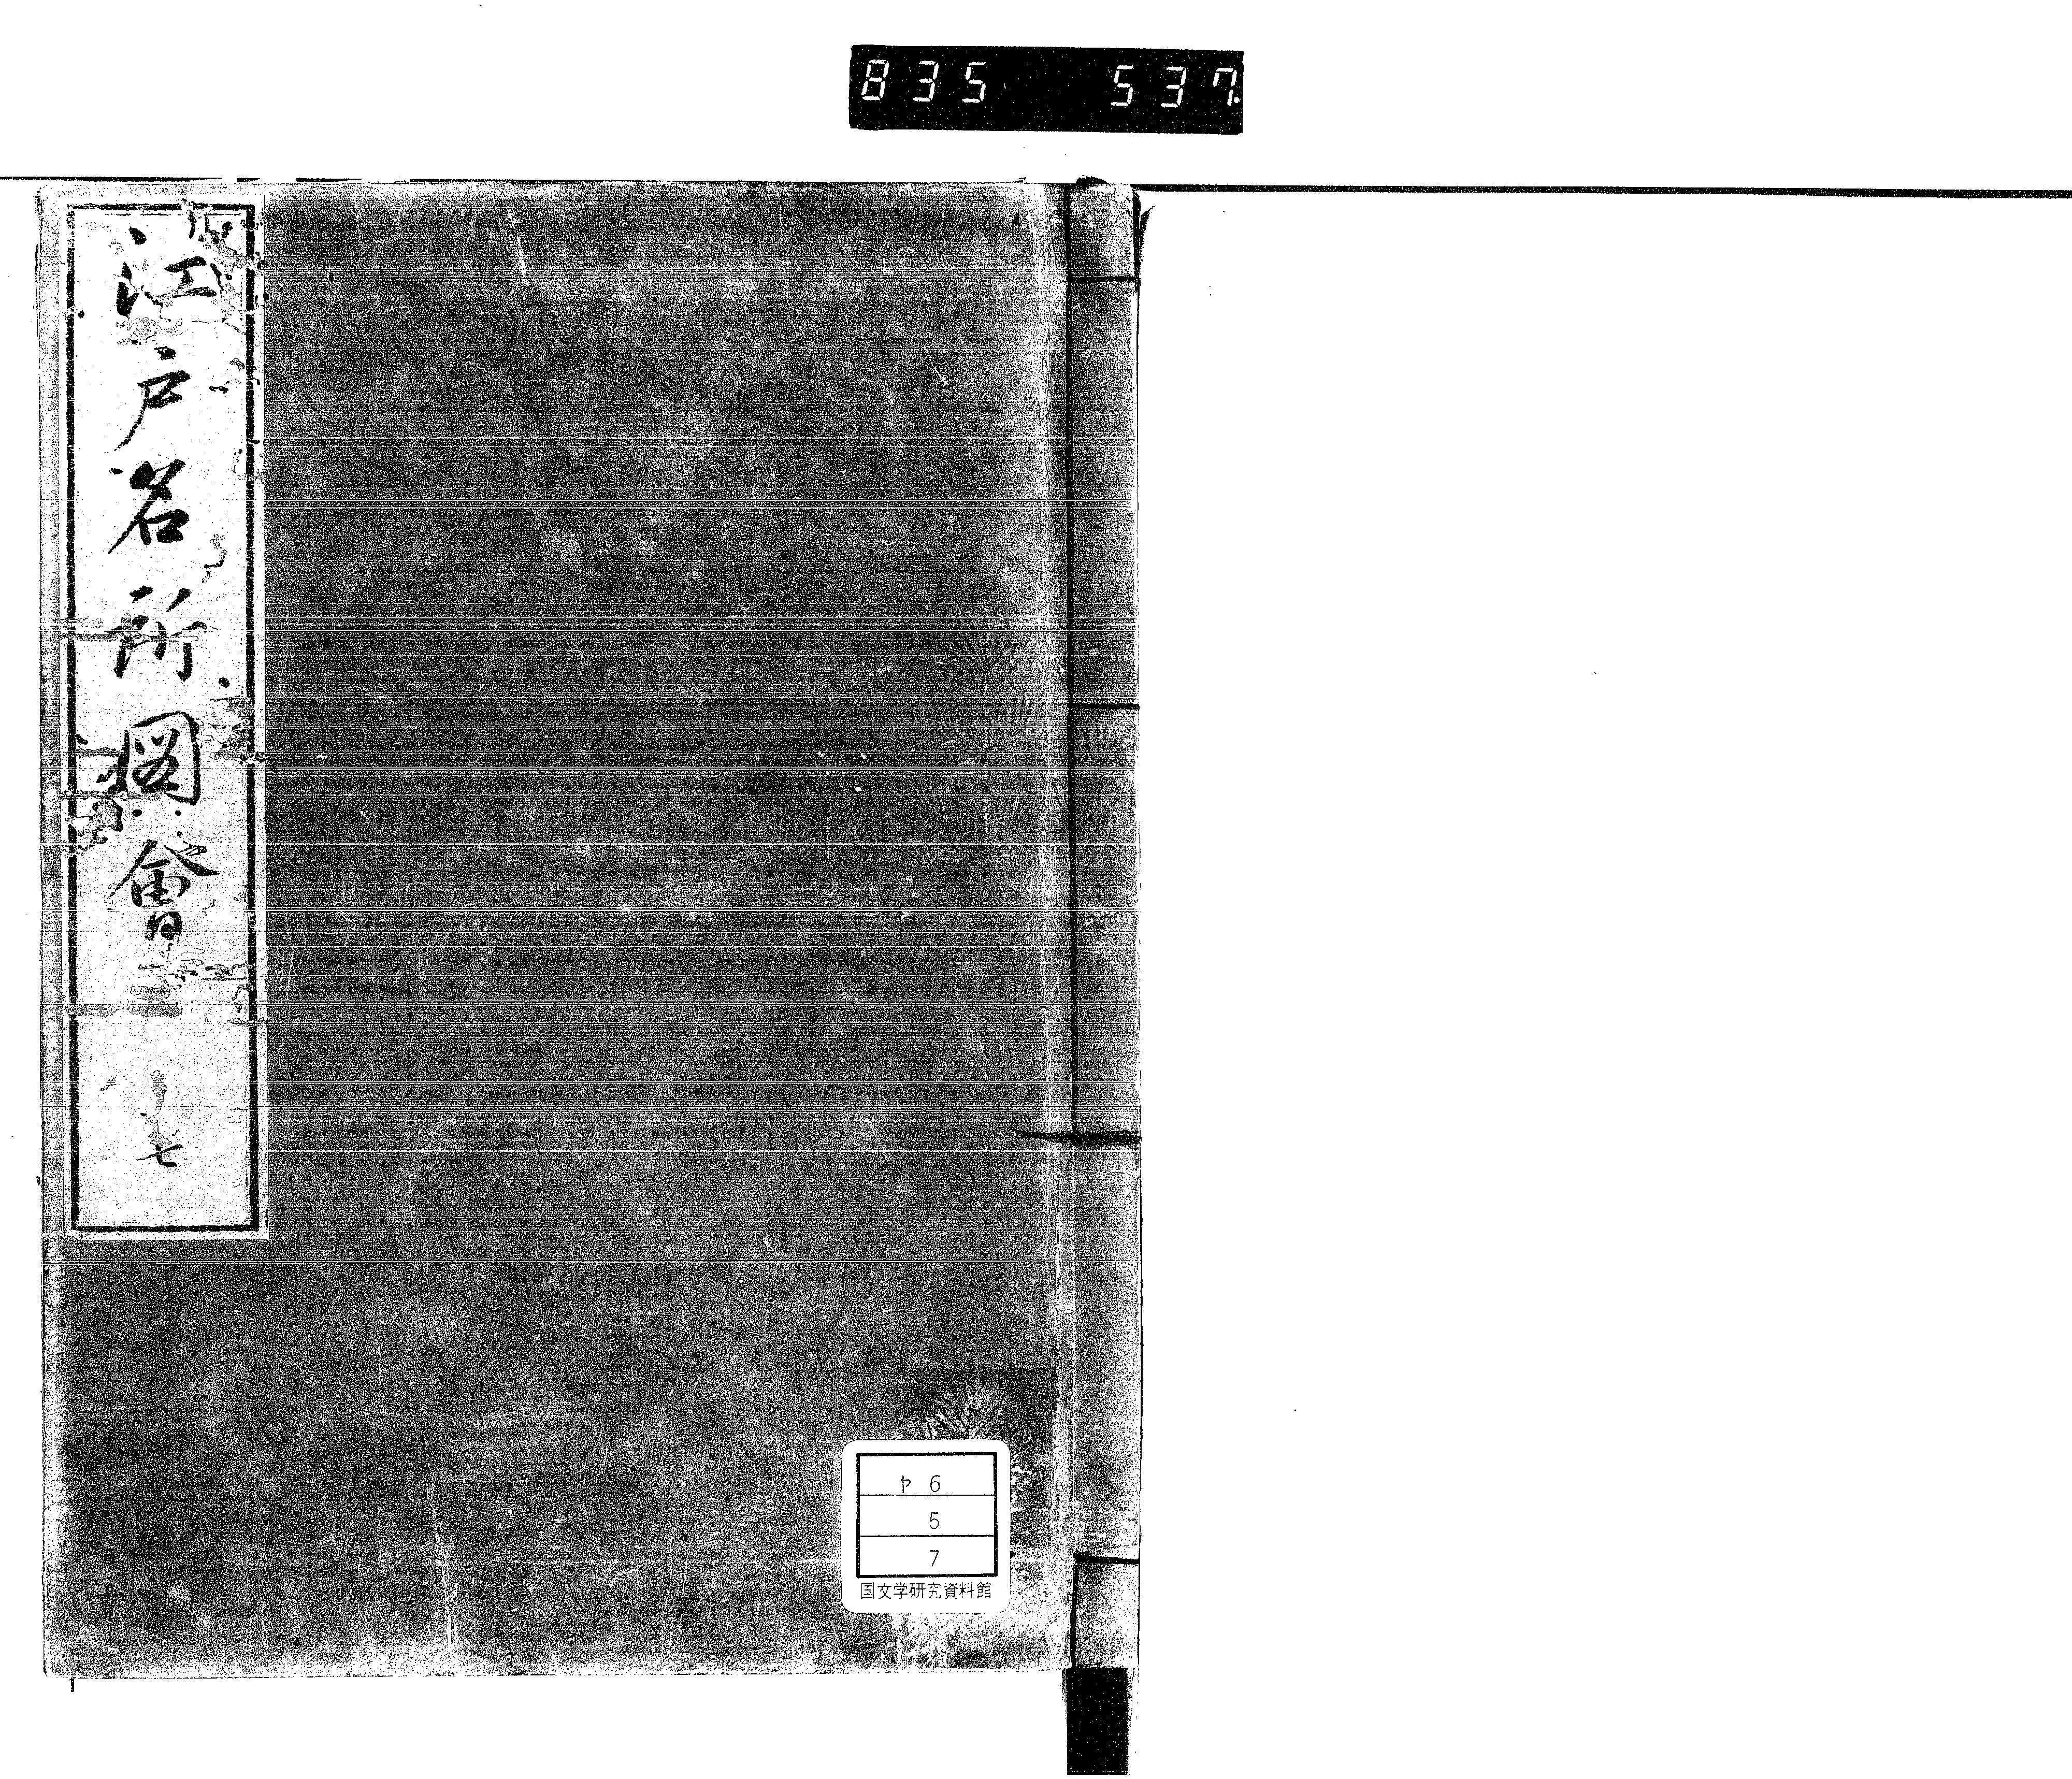 835 537
江戸名所圖會
七
ヤ 6
5
7
国文学研究資料館